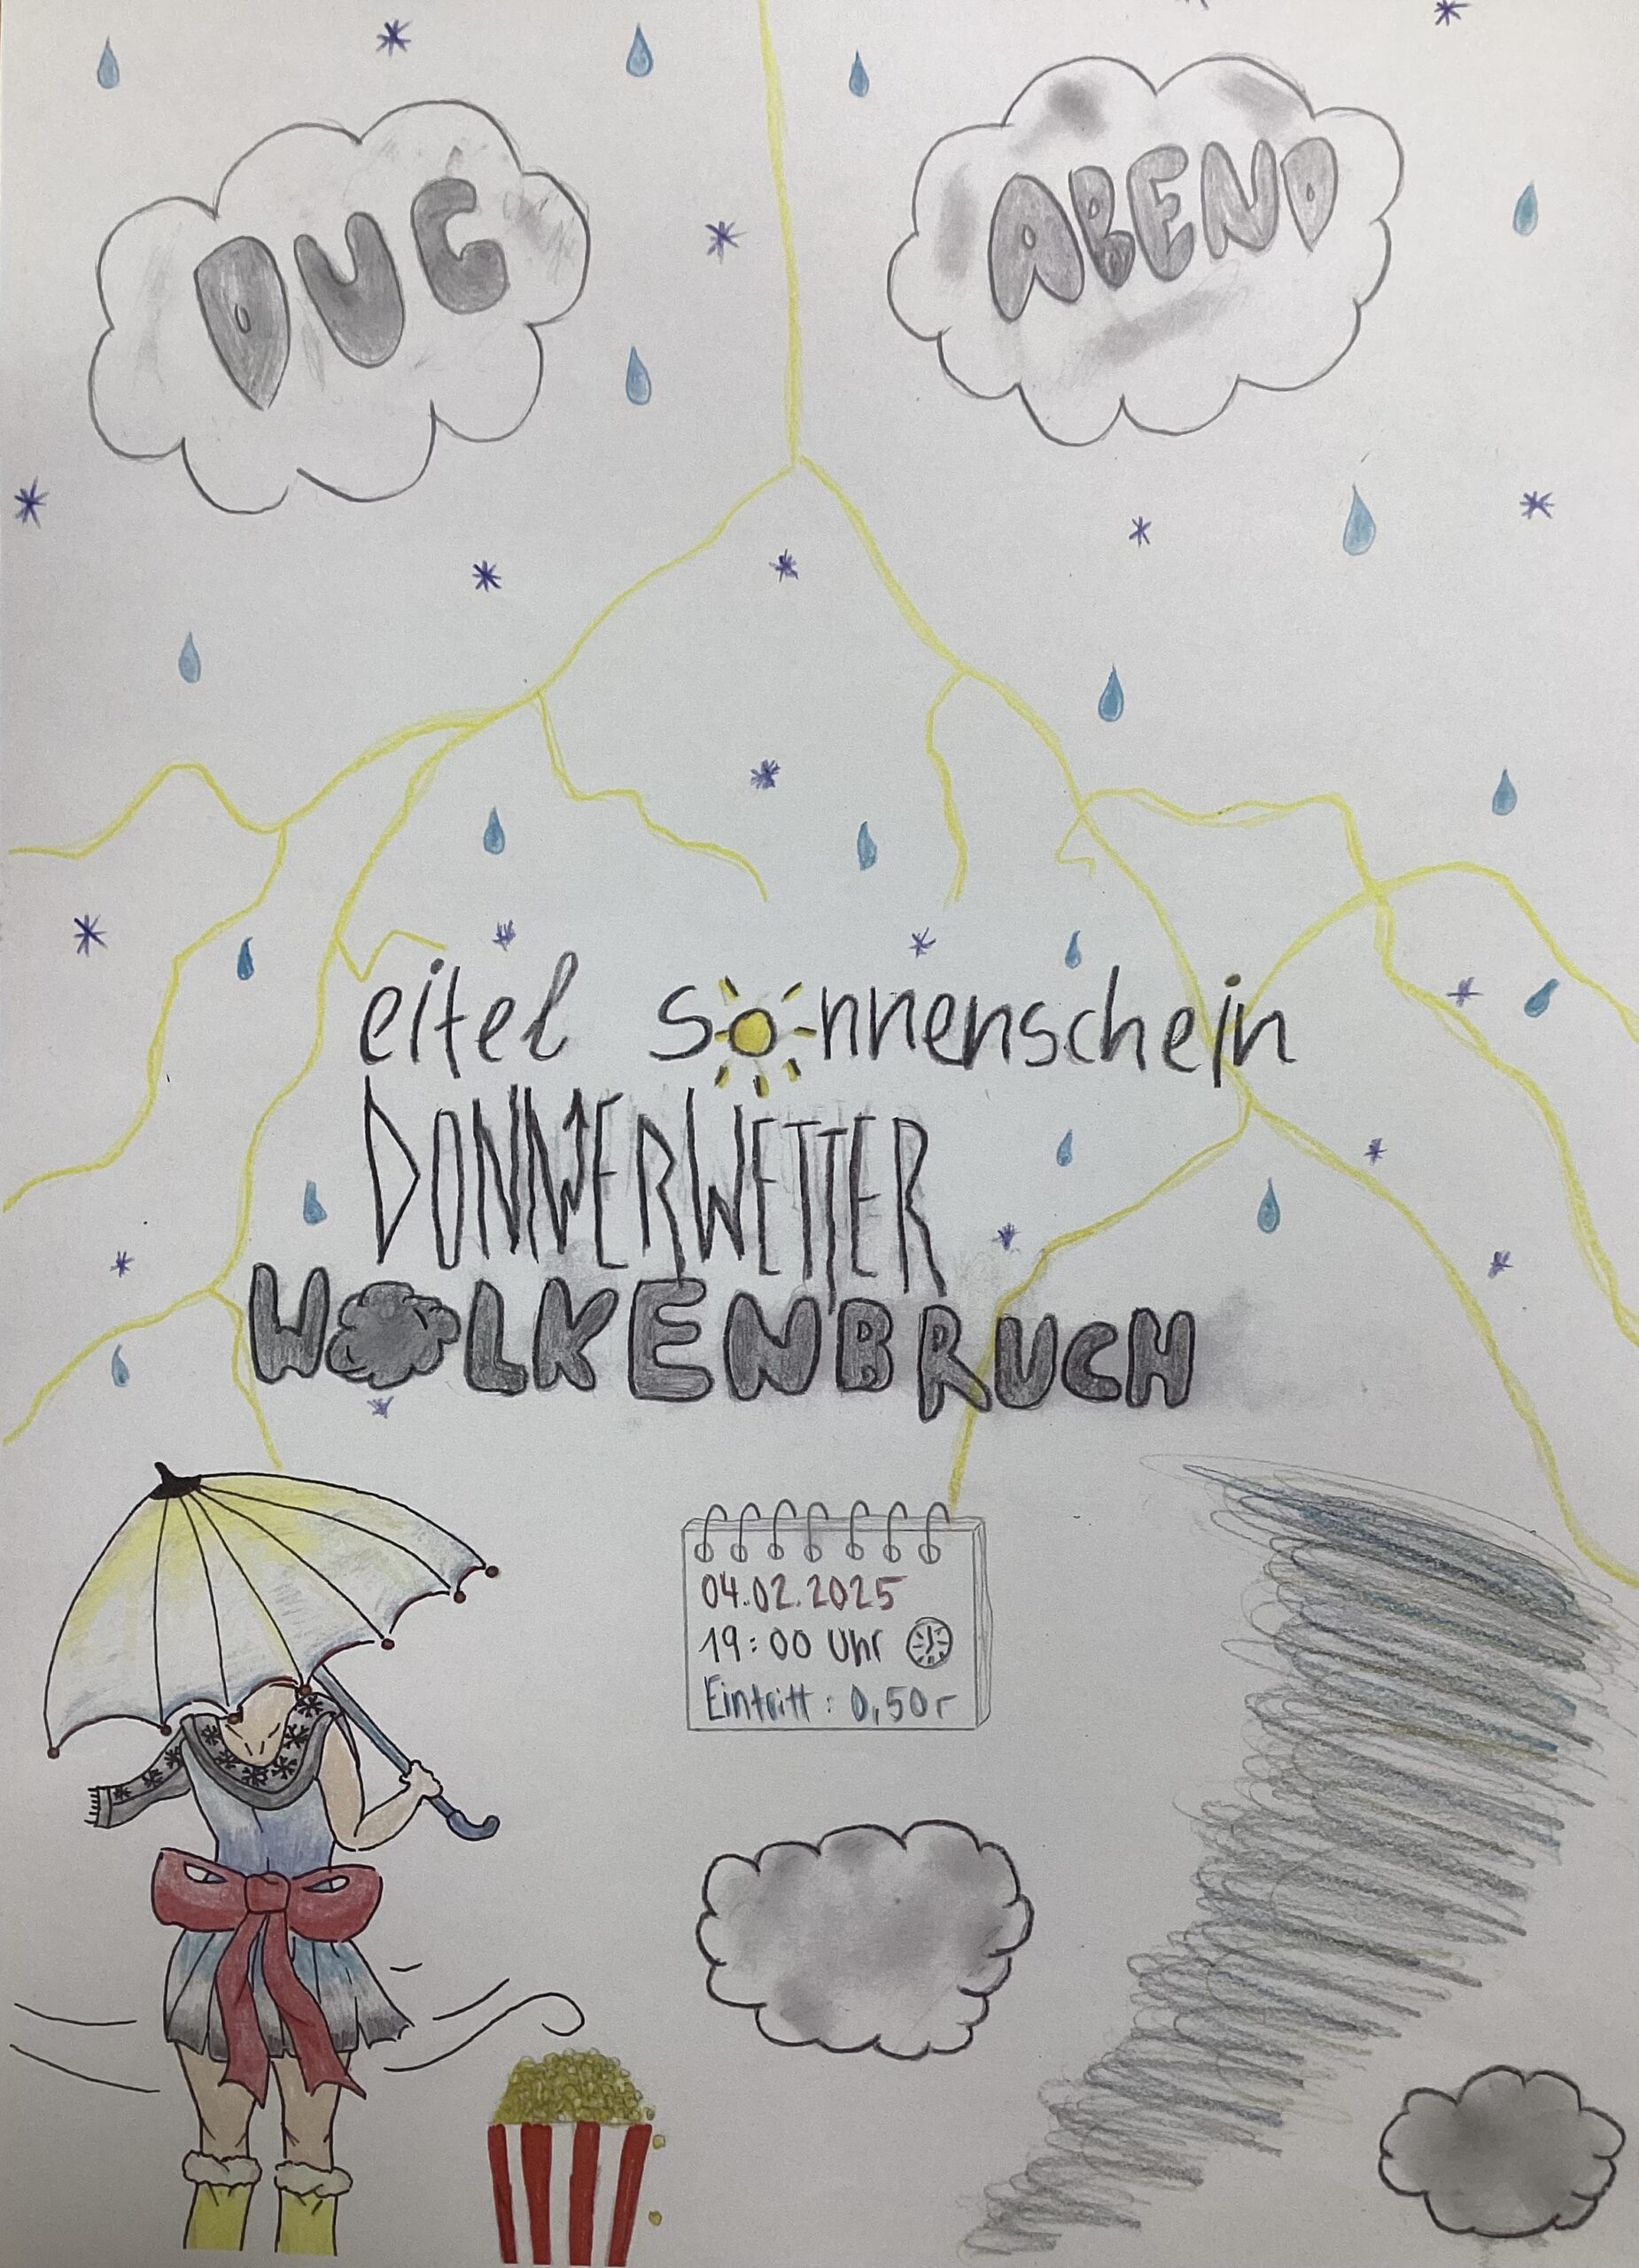 DUG
ABEND
eitel sonnenschein
DONNERWETTER
WOLKENBRUCH
04.02.2025
19:00 Uhr
Eintritt: 0,50r